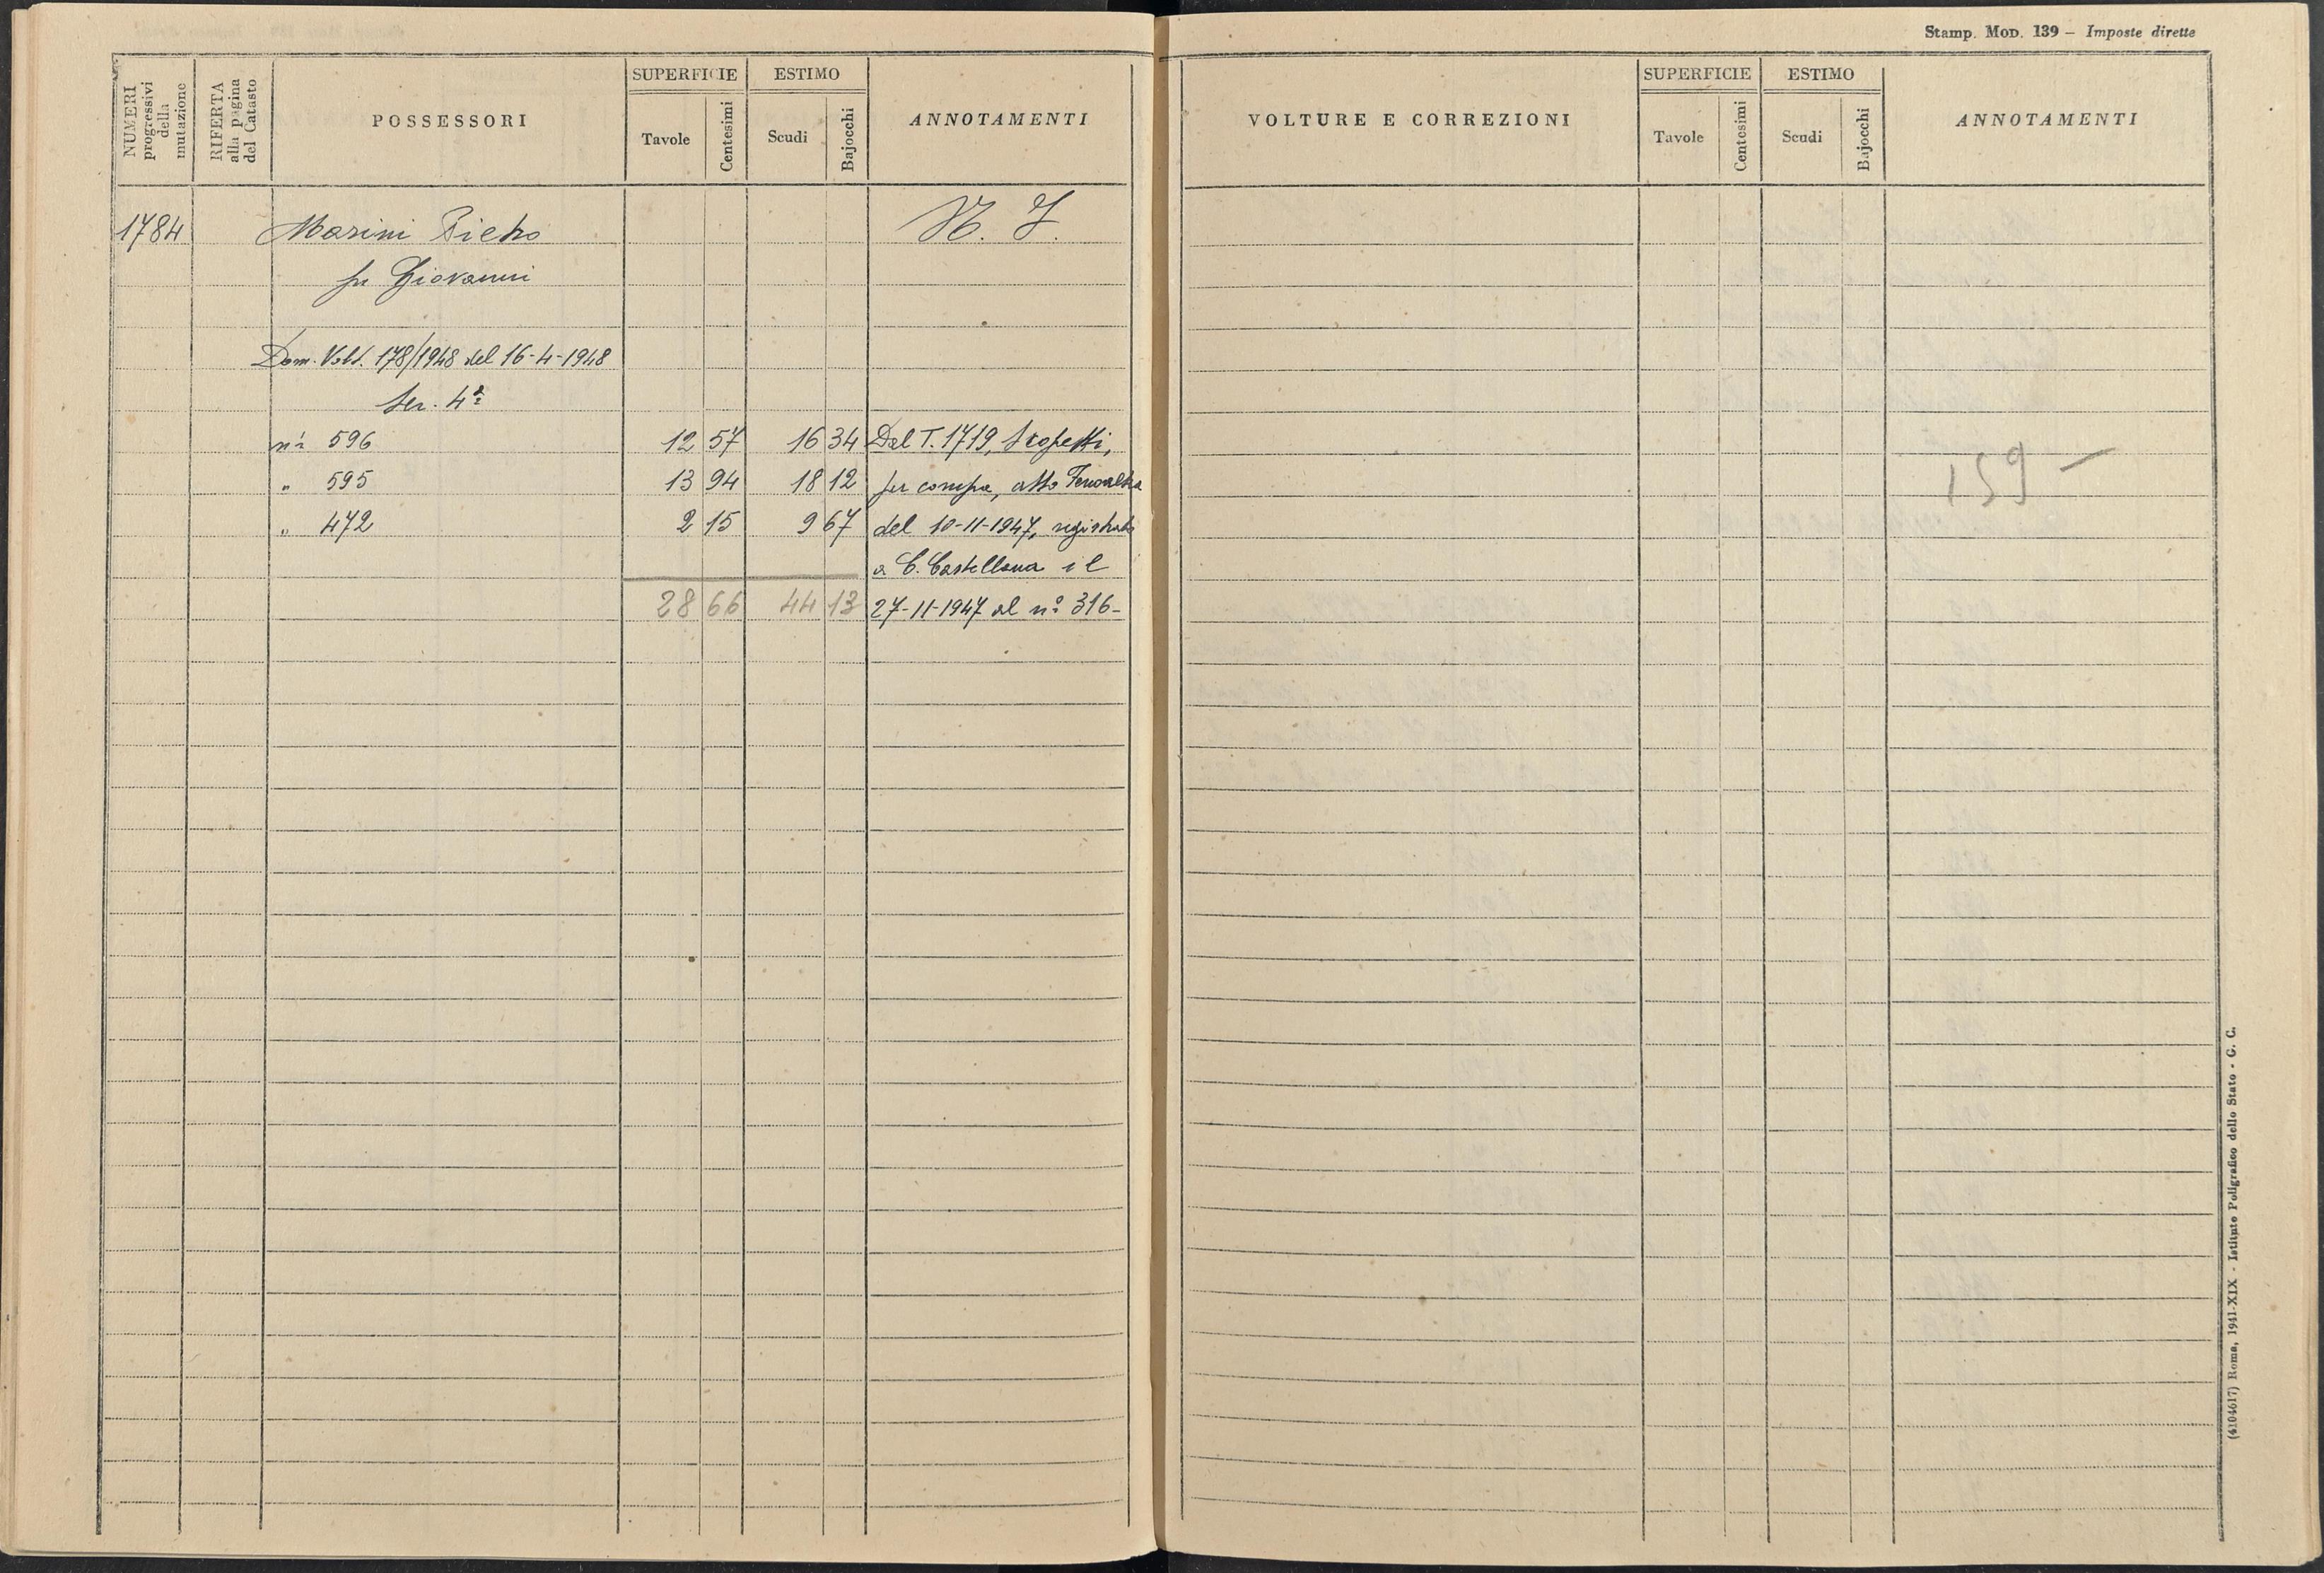 Stamp. Mod. 139 – Imposte dirette
NUMERI progressivi della mutazione
RIFERTA alla pagina del Catasto
POSSESSORI
SUPERFICIE
Tavole
Centesimi
ESTIMO
Scudi
Bajocchi
ANNOTAMENTI
1784 Marini Pietro N. I.
fu Giovanni
Dom. Volt. 178/1948 del 16-4-1948
Sez. 4ª
n.i 596 12 57 16 34 Dal T. 1719,
" 595 13 94 18 12 per compra, atto
" 472 2 15 9 67 del 10-11-1947, registrato
a C. Castellana il
28 66 44 13 27-11-1947 al n.o 316-
VOLTURE E CORREZIONI
SUPERFICIE
Tavole
Centesimi
ESTIMO
Scudi
Bajocchi
ANNOTAMENTI
159 –
(4104617) Roma, 1941-XIX - Istituto Poligrafico dello Stato - G. C.